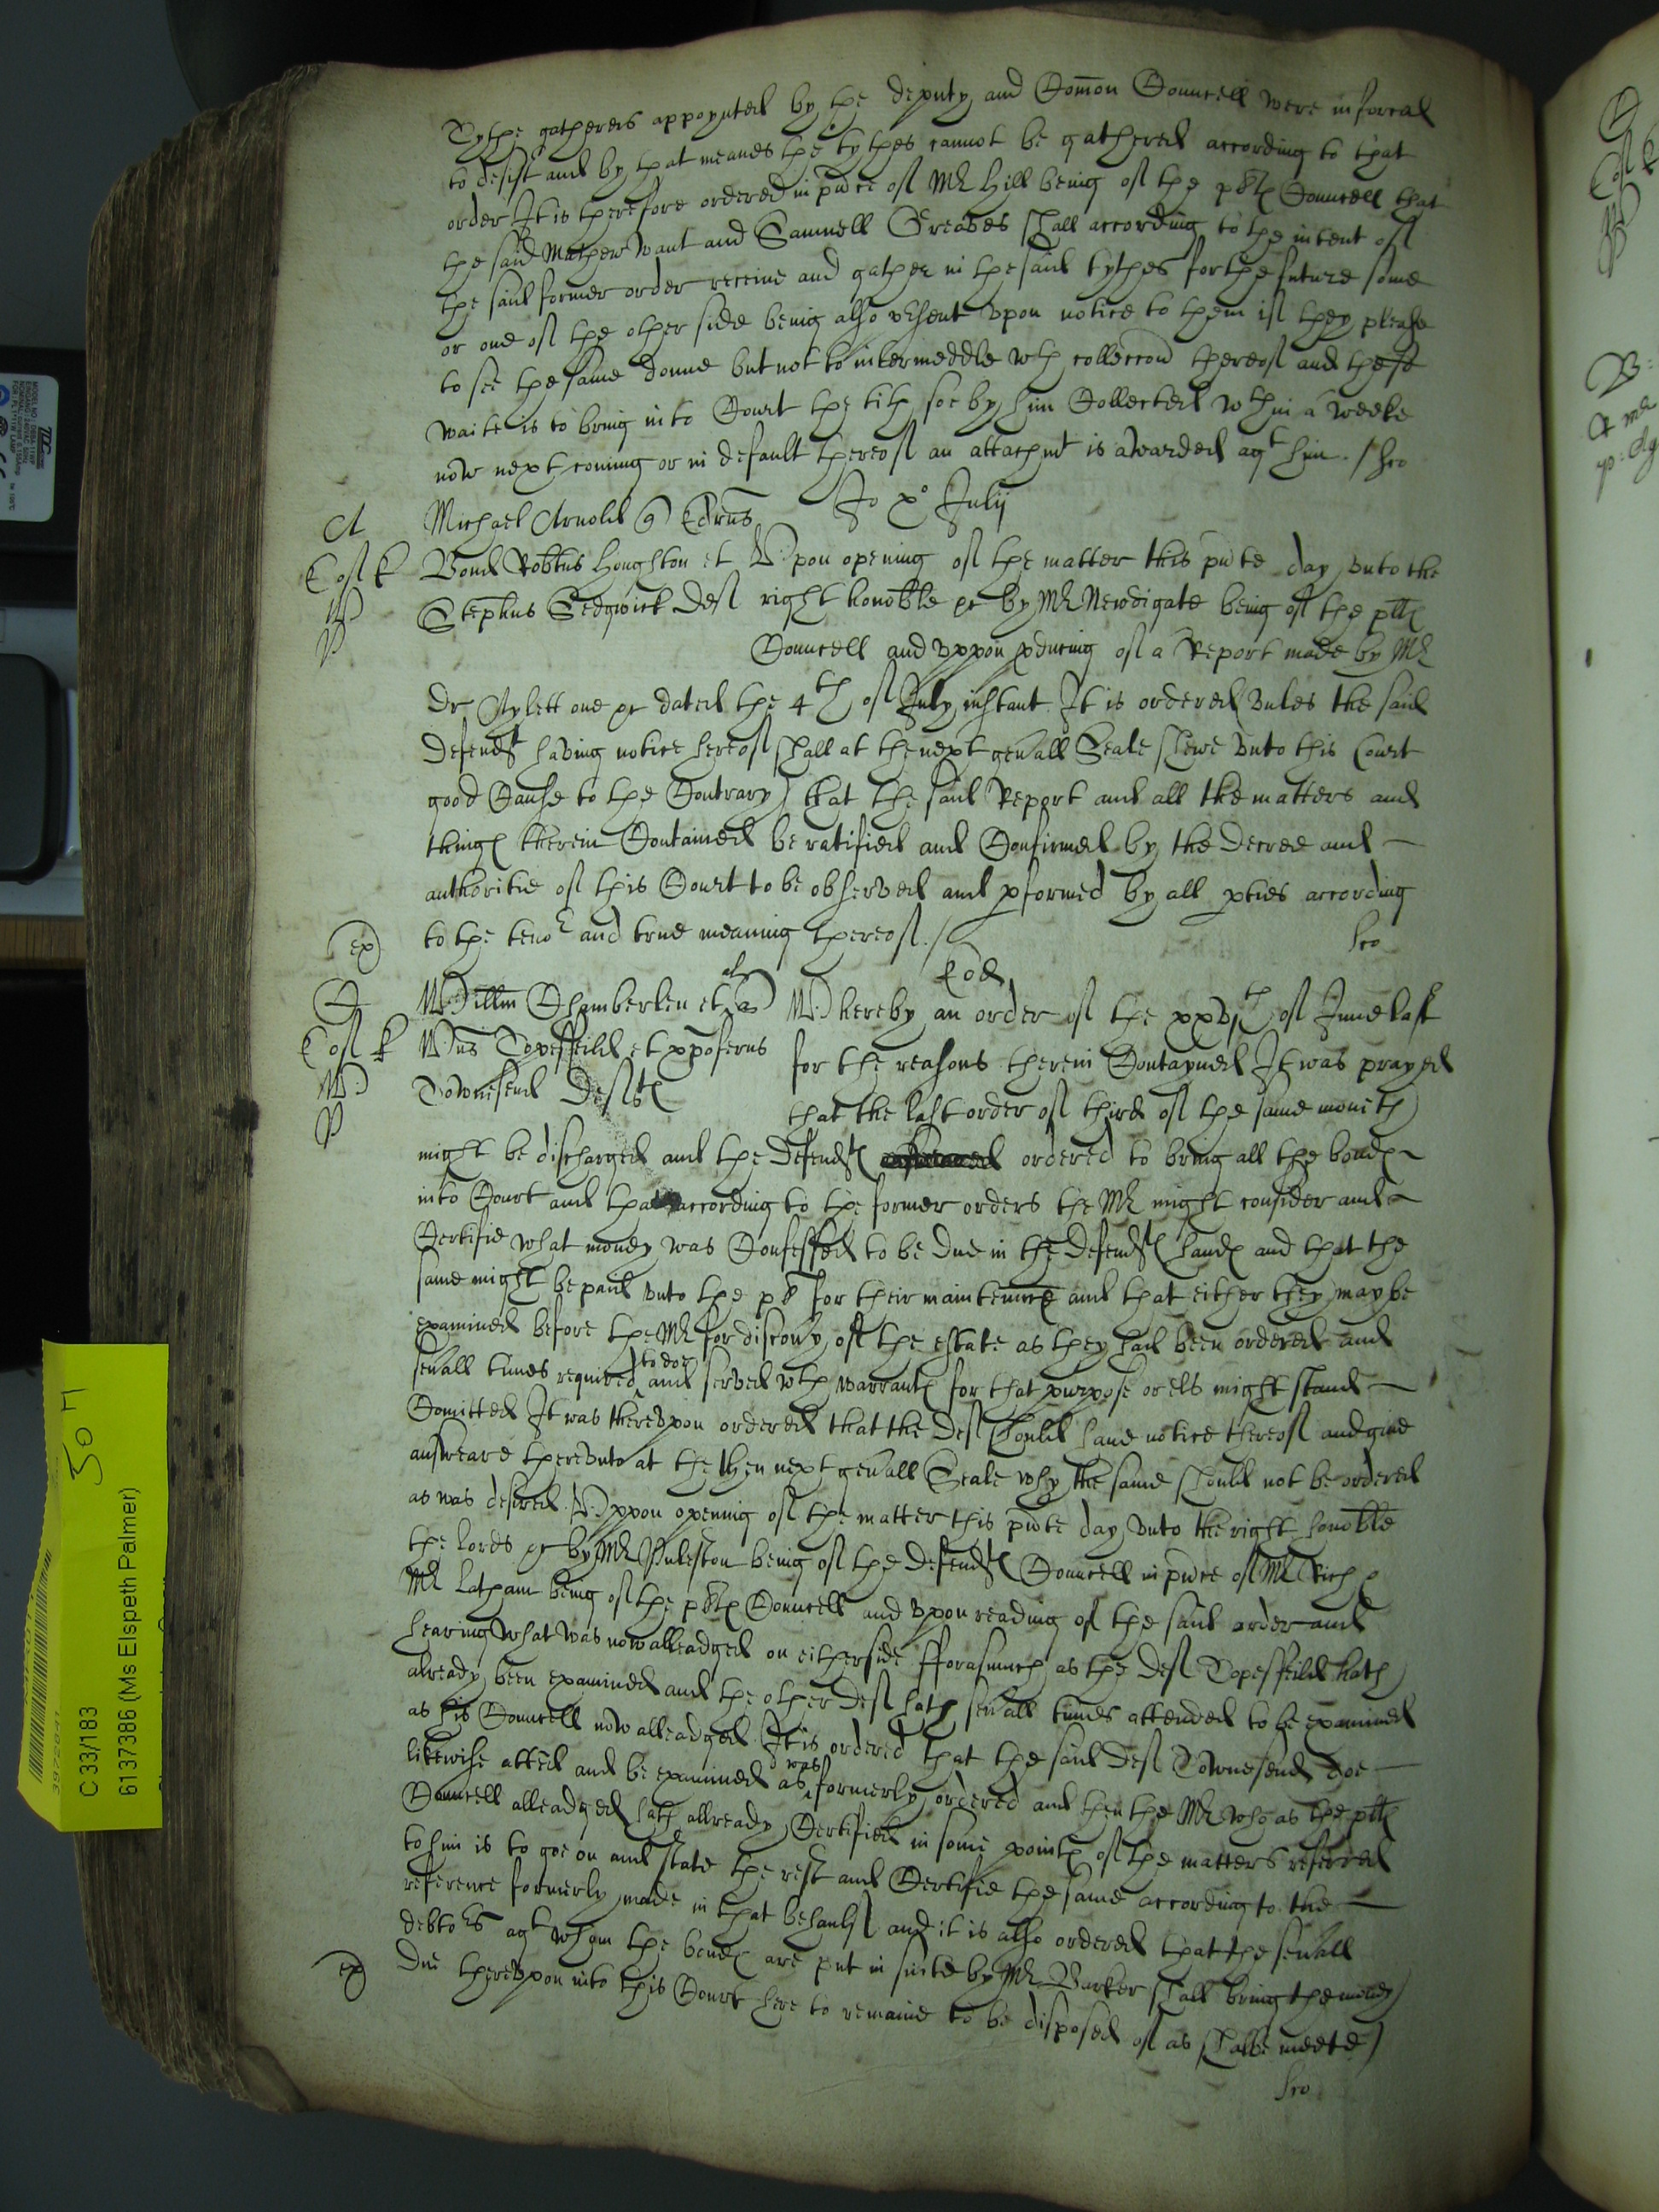 Tythe gatherers appoynted by the deputy and Comon Councell were inforced
to desist and by that meanes the tythes cannot be gathered according to that
order It is therefore ordered in pñce of Mr Hill being of the pltes Councell that
the said Mathew Wait and Samuell Greaves shall according to the intent of
the said former order receive and gather in the said tythes for the future some
or one of the other side being also present vpon notice to them if they please
to see the same donne but not to intermeddle wth colleccon thereof and the sd
Waite is to bring into Court the tith soe by him Collected wthin a weeke
now next coming or in default thereof an attachmt is awarded agt him /
Jo xo Julij
A
Michael Arnold q Edrus
Cost k
Bond Robtus Houghton et
Stephus Sedgwick deft
Vpon opening of the matter this pñte day vnto the
right honoble &c by Mr Newdigate being of the pltes
Councell and vppon pducing of a Report made by Mr
Dr Aylett one &c dated the 4th of July instant It is ordered vnles the said
defendt having notice hereof shall at the next genall Seale shewe vnto this Court
good Cause to the Contrary that the said Report and all the matters and
things therein Contained be ratified and Confirmed by the decree and
authoritie of this Court to be observed and pformed by all pties according
to the tenor and true meaning thereof /
ex
Eod
C
Willm Chamberlen et al
Cost k
Wus Topesfeild et xpoferus
Townesend Defts
W
Whereby an order of the xxvjth of June last
for the reasons therein Contayned It was prayed
that the last order of third of the same moneth
might be discharged and the defendts ordered to bring all the bonds
into Court and that according to the former orders the Mr might consider and
Certifie what money was Confessed to be due in the defendts hands and that the
same might be paid vnto the plt for their maintennce and that either they may be
examined before the Mr for discovy of the estate as they had been ordered and
sevall times required to doe and served wth warrants for that purpose or els might stand
Comitted It was therevpon ordered that the deft should have notice thereof and give
answeare therevnto at the then next genall Seale why the same should not be ordered
as was desired Vppon opening of the matter this pñte day vnto the right honoble
the lords &c by Mr Puleston being of the defendts Councell in pñce of Mr Rich &
Mr Latham being of the pltes Councell and vpon reading of the said order and
hearing what was now alleadged on either side fforasmuch as the deft Topesfeild hath
already been examined and the other deft hath sevall times attended to be examined
as his Councell now alleadged It is ordered that the said deft Townesend doe
likewise attend and be examined as was formerly ordered and then the Mr who as the pltes
Councell alleadged hath allready Certified in some points of the matters referred
to him is to goe on and state the rest and Certifie the same according to the
reference formerly made in that behaulf and it is also ordered that the sevall
debtors agt whom the bonds are put in suite by Mr Barker shall bring the money
ex
due therevpon into this Court here to remaine to be disposed of as shalbe meete /
50
C 33/183
6137386 (Ms Elspeth Palmer)